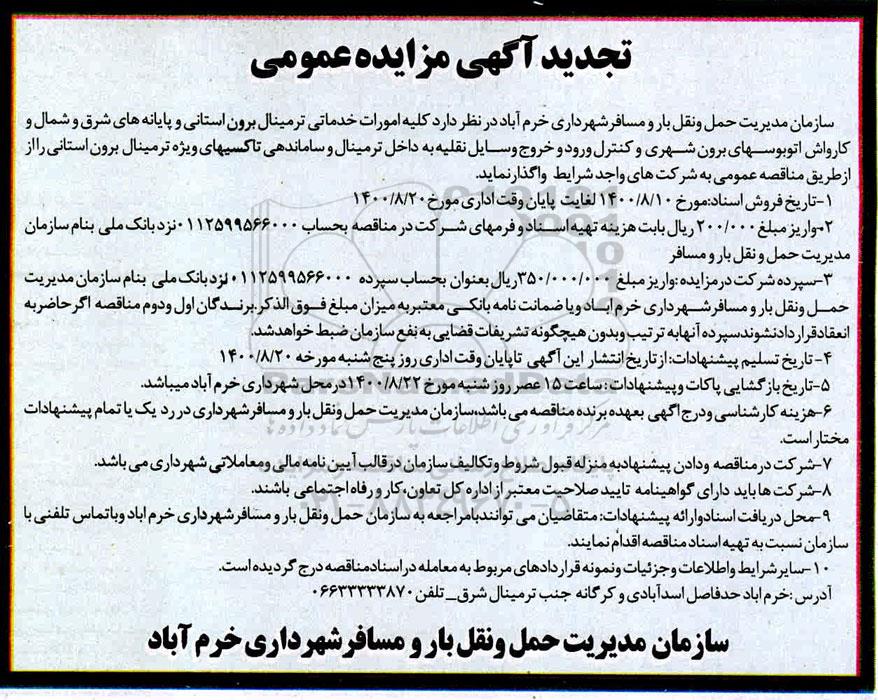 تجدید آگهی مزایده عمومی
سازمان مدیریت حمل ونقل بار و مسافر شهرداری خرم آباد در نظر دارد کلیه امورات خدماتی ترمینال برون استانی و پایانه های شرق و شمال و
کارواش اتوبوسهای برون شهری و کنترل ورود و خروج وسایل نقلیه به داخل ترمینال و ساماندهی تاکسیهای ویژه ترمینال برون استانی را از
ازطریق مناقصه عمومی به شرکت های واجد شرایط واگذار نماید.
۱-تاریخ فروش اسناد:مورخ ۱۴۰۰/۸/۱۰ لغایت پایان وقت اداری مورخ ۱۴۰۰/۸/۲۰
۲-واریز مبلغ ۲۰۰/۰۰۰ ریال بابت هزینه تهیه اسناد و فرمهای شرکت در مناقصه بحساب ۰۱۱۲۵۹۹۵۶۶۰۰۰ نزد بانک ملی بنام سازمان
مدیریت حمل و نقل بار و مسافر
۳-سپرده شرکت در مزایده :واریز مبلغ ۳۵۰/۰۰۰/۰۰۰ریال بعنوان بحساب سپرده ۰۱۱۲۵۹۹۵۶۶۰۰۰ نزد بانک ملی بنام سازمان مدیریت
حمل ونقل بار و مسافر شهرداری خرم اباد ویا ضمانت نامه بانکی معتبر به میزان مبلغ فوق الذکر.برندگان اول ودوم مناقصه اگر حاضر به
انعقاد قرار داد نشوند سپرده آنها به ترتیب وبدون هیچگونه تشریفات قضایی به نفع سازمان ضبط خواهد شد.
۴-تاریخ تسلیم پیشنهادات:از تاریخ انتشار این آگهی تا پایان وقت اداری روز پنج شنبه مورخه ۱۴۰۰/۸/۲۰
۵-تاریخ بازگشایی پاکات و پیشنهادات :ساعت ۱۵ عصر روز شنبه مورخ ۱۴۰۰/۸/۲۲ در محل شهرداری خرم آباد میباشد.
۶-هزینه کارشناسی و درج اگهی بعهده برنده مناقصه می باشد،سازمان مدیریت حمل ونقل بار و مسافر شهرداری در رد یک یا تمام پیشنهادات
مختار است.
۷-شرکت در مناقصه ودادن پیشنهاد به منزله قبول شروط و تکالیف سازمان در قالب آیین نامه مالی ومعاملاتی شهرداری می باشد.
۸-شرکت ها باید دارای گواهینامه تایید صلاحیت معتبر از اداره کل تعاون،کار و رفاه اجتماعی باشند.
۹-محل دریافت اسناد وارائه پیشنهادات: متقاضیان می توانند بامراجعه به سازمان حمل ونقل بار و مسافر شهرداری خرم اباد وباتماس تلفنی با
سازمان نسبت به تهیه اسناد مناقصه اقدام نمایند.
۱۰-سایر شرایط واطلاعات وجزئیات ونمونه قراردادهای مربوط به معامله در اسناد مناقصه درج گردیده است.
آدرس :خرم اباد حدفاصل اسدآبادی و کرگانه جنب ترمینال شرق_ تلفن ۰۶۶۳۳۳۳۳۸۷۰
سازمان مدیریت حمل ونقل بار و مسافر شهرداری خرم آباد